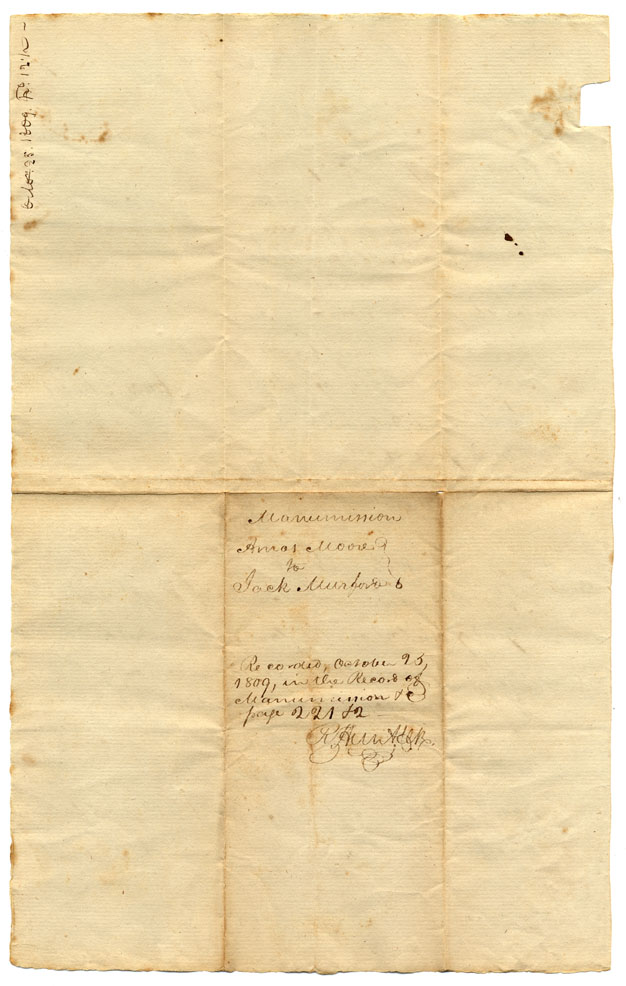 Octbr. 25. 1809.
Manumission
Amos Moore
to
Jack Murford
Recorded, October 25,
1809, in the Record of
Manumission &c
page 221 & 2
Hunt Clk.